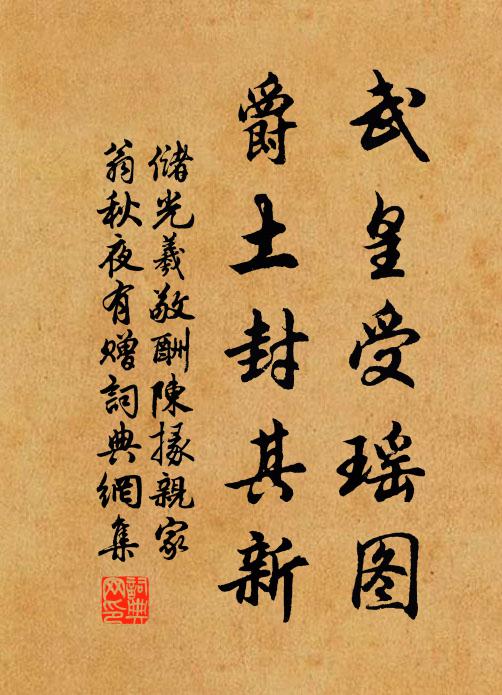 武皇受瑶图
爵土封其新
储光羲敬酬陳掾親家
翁秋夜有赠詞典網集
詞典网印